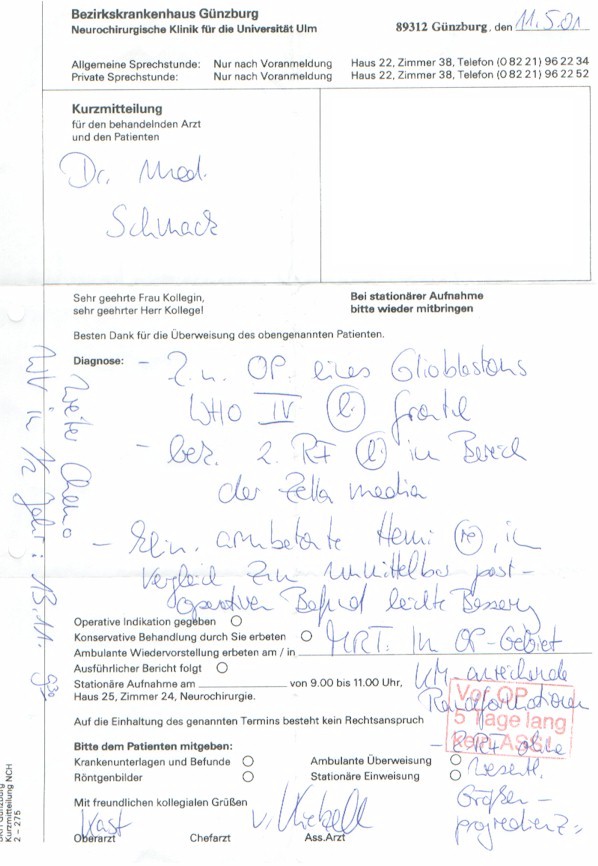 Bezirkskrankenhaus Günzburg
Neurochirurgische Klinik für die Universität Ulm
89312 Günzburg, den 11.5.01
Allgemeine Sprechstunde: Nur nach Voranmeldung Haus 22, Zimmer 38, Telefon (0 82 21) 96 22 34
Private Sprechstunde: Nur nach Voranmeldung Haus 22, Zimmer 38, Telefon (0 82 21) 96 22 52
Kurzmitteilung
für den behandelnden Arzt
und den Patienten
Dr. Med.
Schmack
Sehr geehrte Frau Kollegin,
sehr geehrter Herr Kollege!
Bei stationärer Aufnahme
bitte wieder mitbringen
Besten Dank für die Überweisung des obengenannten Patienten.
Diagnose: - Z.n. OP. eines Glioblastoms
WHO IV li frontal
- bek. 2. RF li im Bereich
der Zella media
- Klin. armbetonte Hemi re, im
Vergleich zum unmittelbar post-
operativen Befund leichte Besserung
Operative Indikation gegeben
Konservative Behandlung durch Sie erbeten
Ambulante Wiedervorstellung erbeten am / in
Ausführlicher Bericht folgt
Stationäre Aufnahme am von 9.00 bis 11.00 Uhr,
Haus 25, Zimmer 24, Neurochirurgie.
MRT: In OP-Gebiet
KM-anreichernde
Randformationen
- 2. RF ohne
wesentl.
Größen-
progredienz
Vor OP
5 Tage lang
kein ASS!
Auf die Einhaltung des genannten Termins besteht kein Rechtsanspruch
Bitte dem Patienten mitgeben:
Krankenunterlagen und Befunde
Röntgenbilder
Ambulante Überweisung
Stationäre Einweisung
Mit freundlichen kollegialen Grüßen
Oberarzt Chefarzt Ass.Arzt
weiter Chemo
WV in 1/2 Jahr: 13.11. 9 30
Kurzmitteilung NCH
2 – 275